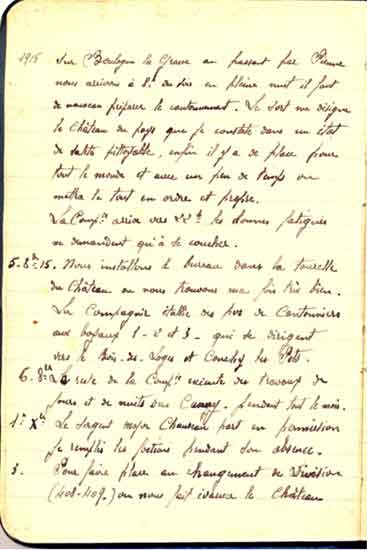 1915 Sur Boulogne la Grasse en passant par Piennes
nous arrivons à 8h. du soir en pleine nuit il faut
de nouveau préparer le cantonnement. Le sort me désigne
le Château du pays que je constate dans un état
de saleté pittoyable, enfin il y a de place pour
tout le monde et avec un peu de temps on
mettra le tout en ordre et propre.
La Compie arrive vers 22h les hommes fatigués
ne demandent qu'à se coucher.
5-8bre 15. Nous installons le bureau dans la tourelle
du Château ou nous trouvons ma fois très bien.
La Compagnie établie des de Cantonniers
aux boyaux 1-2 et 3 - qui se dirigent
vers le Bois-des-Loges et Conchy les Pots.
6.8bre Le reste de la Compie exécute des travaux de
jours et de nuits vers Canny. pendant tout le mois.
1er Xbre Le Sergent major Chausson part en permission
je remplis les fonctions pendant son absence.
3. Pour faire place au changement de Division
(408-409.) on nous fait évacuer le Château